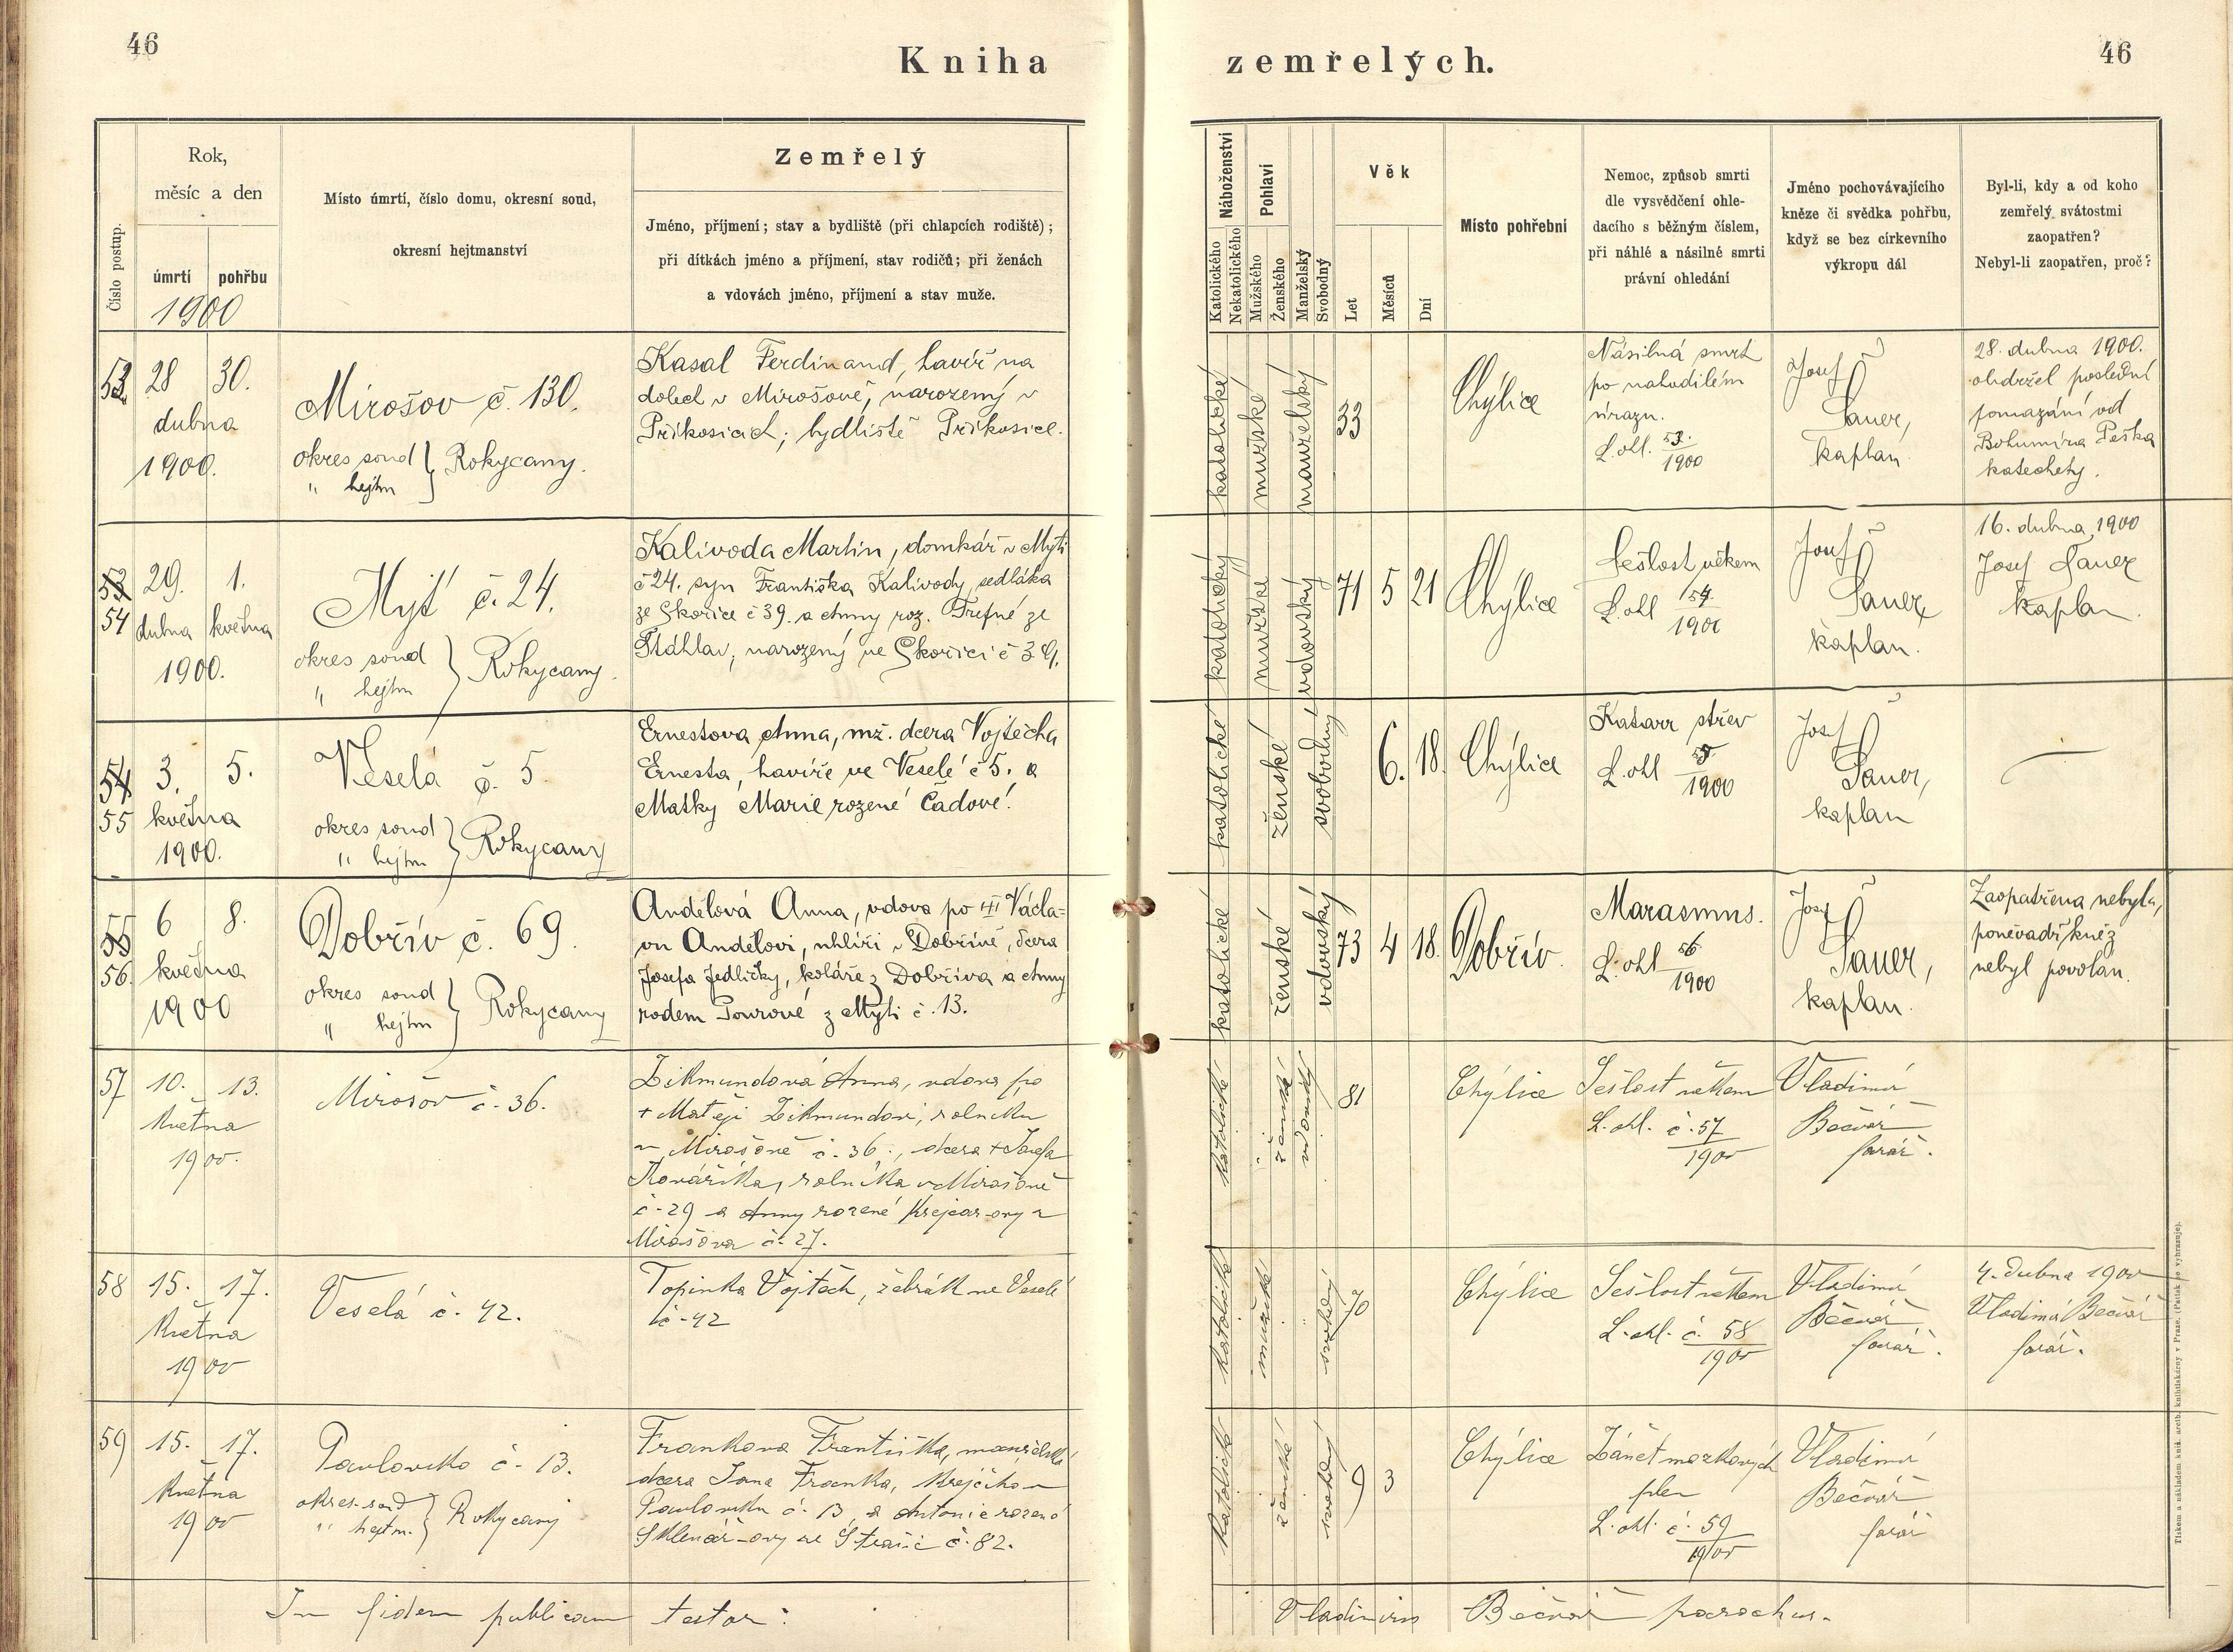 46
Kniha
zemřelých.
46
Číslo postup.
Rok,
měsíc a den
úmrtí
pohřbu
1900
Místo úmrtí, číslo domu, okresní soud,
okresní hejtmanství
Zemřelý
Jméno, příjmení; stav a bydliště (při chlapcích rodiště);
při dítkách jméno a příjmení, stav rodičů; při ženách
a vdovách jméno, příjmení a stav muže.
Náboženství
Katolického
Nekatolického
Pohlaví
Mužského
Ženského
Manželský
Svobodný
Věk
Let
Měsíců
Dní
Místo pohřební
Nemoc, způsob smrti
dle vysvědčení ohle-
dacího s běžným číslem,
při náhlé a násilné smrti
právní ohledání
Jméno pochovávajícího
kněze či svědka pohřbu,
když se bez církevního
výkropu dál
Byl-li, kdy a od koho
zemřelý svátostmi
zaopatřen?
Nebyl-li zaopatřen, proč?
53
28
30.
dubna
1900.
Mirošov č. 130.
okres soud } Rokycany.
" hejtm
Kasal Ferdinand, havíř na
dolech v Mirošově, narozený v
Příkosicích; bydliště Příkosice.
katolické
mužské
manželský
33
Chýlice
Násilná smrt
po nahodilém
úrazu.
L. ohl. 53. 1900
Josef
Sauer,
kaplan
28. dubna 1900.
obdržel poslední
pomazání od
Bohumíra Peška
katechety.
53
54
29.
1.
dubna
května
1900.
Mýť č. 24.
okres soud } Rokycany.
" hejtm
Kalivoda Martin, domkář v Mýti
č 24. syn Františka Kalivody, sedláka
ze Skořice č 39. a Anny roz. Trefné ze
Štáhlav; narozený ve Skořici č 39.
katolický
mužské
vdovský
71
5
21
Chýlice
Sešlost věkem
L. ohl 54. 1900
Josef
Sauer
kaplan.
16. dubna 1900
Josef Sauer
kaplan.
54
55
3.
5.
května
1900.
Veselá č. 5
okres soud } Rokycany
" hejtm
Ernestova Anna, mž. dcera Vojtěcha
Ernesta, havíře ve Veselé č 5. a
Matky Marie rozené Čadové.
katolické
ženské
svobodný
6.
18.
Chýlice
Katarr střev
L. ohl 55 1900
Josef
Sauer,
kaplan
55
56.
6
8.
května
1900
Dobřív č. 69.
okres soud } Rokycany
" hejtm
Andělová Anna, vdova po Václa-
vu Andělovi, uhlíři v Dobřívě, dcera
Josefa Jedličky, koláře z Dobříva a Anny
rodem Pourové z Mýti č. 13.
katolické
ženské
vdovský
73
4
18.
Dobřív.
Marasmus.
L. ohl 56 1900
Josef
Sauer,
kaplan.
Zaopatřena nebyla,
poněvadž kněz
nebyl povolán.
57
10.
13.
Května
1900.
Mirošov č. 36.
Zikmundová Anna, vdova po
+ Matěji Zikmundovi, rolníku
v Mirošově č. 36., dcera + Josefa
Kováříka, rolníka v Mirošově
č. 29 a Anny rozené Krejcar-ovy z
Mirošova č. 27.
katolické
ženské
vdovský
81
Chýlice
Sešlost věkem
L. ohl. č. 57 1900
Vladimír
Bečvář
farář.
58
15.
17.
Května
1900
Veselá č. 42.
Topinka Vojtěch, žebrák ve Veselé
č. 42
katolické
mužské
svobodný
70
Chýlice
Sešlost věkem
L. ohl. č. 58 1900
Vladimír
Bečvář
farář.
4. dubna 1900
Vladimír Bečvář
farář.
59
15.
17.
Května
1900
Pavlovsko č. 13.
okres. soud } Rokycany
" hejtm.
Frankova Františka, manželská
dcera Jana Franka, krejčího v
Pavlovsku č. 13, a Antonie rozené
Sklenář-ovy ze Strašic č. 82.
katolické
ženské
svobodný
9
3
Chýlice
Zánět mozkových
plen
L. ohl. č. 59 1900
Vladimír
Bečvář
farář
In fidem publicam testor:
Vladimirus Bečvář parochus.
Tiskem a nákladem kníž. arcib. knihtiskárny v Praze. (Patisk se vyhrazuje).